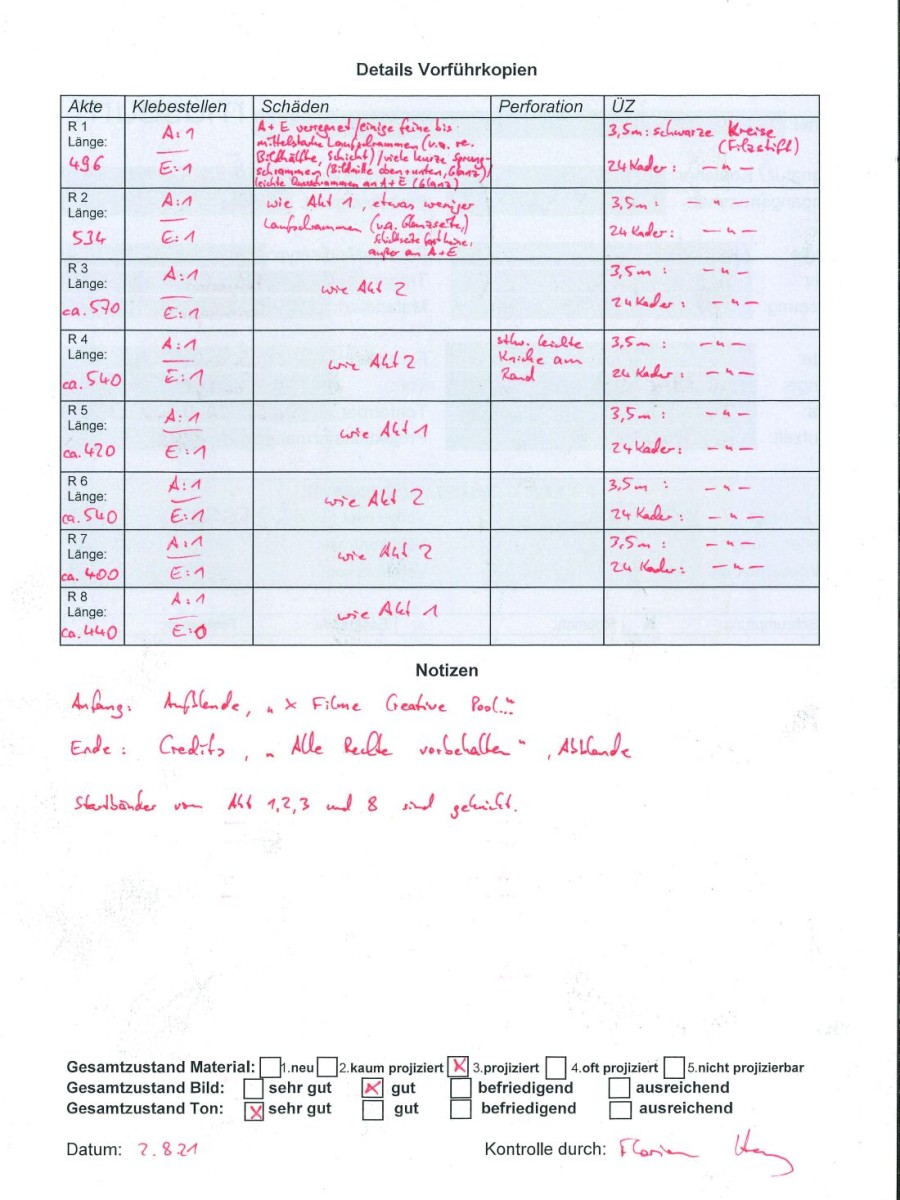 Details Vorführkopien
Akte Klebestellen Schäden Perforation ÜZ
R 1
Länge:
496
A: 1
E: 1
A + E verregnet / einige feine bis
mittelstarke Laufschrammen (v.a. re.
Bildhälfte, Schicht) / viele kurze Sprung-
schrammen (Bildmitte oben + unten, Glanz) /
leichte Querschrammen an A + E (Glanz)
3,5m: schwarze Kreise
(Filzstift)
24 Kader: — " —
R 2
Länge:
534
A: 1
E: 1
wie Akt 1, etwas weniger
Laufschrammen (v.a. Glanzseite,)
Schichtseite fast keine,
außer an A + E
3,5m: — " —
24 Kader: — " —
R 3
Länge:
ca. 570
A: 1
E: 1
wie Akt 2
3,5m: — " —
24 Kader: — " —
R 4
Länge:
ca. 540
A: 1
E: 1
wie Akt 2
stw. leichte
Knicke am
Rand
3,5m: — " —
24 Kader: — " —
R 5
Länge:
ca. 420
A: 1
E: 1
wie Akt 1
3,5m: — " —
24 Kader: — " —
R 6
Länge:
ca. 540
A: 1
E: 1
wie Akt 2
3,5m: — " —
24 Kader: — " —
R 7
Länge:
ca. 400
A: 1
E: 1
wie Akt 2
3,5m: — " —
24 Kader: — " —
R 8
Länge:
ca. 440
A: 1
E: 0
wie Akt 1
Notizen
Anfang: Aufblende, „X Filme Creative Pool..."
Ende: Credits, „Alle Rechte vorbehalten", Abblende
Startbänder von Akt 1, 2, 3 und 8 sind geknickt.
Gesamtzustand Material: 1.neu 2.kaum projiziert X 3.projiziert 4.oft projiziert 5.nicht projizierbar
Gesamtzustand Bild: sehr gut X gut befriedigend ausreichend
Gesamtzustand Ton: X sehr gut gut befriedigend ausreichend
Datum: 2.8.21 Kontrolle durch: Florian